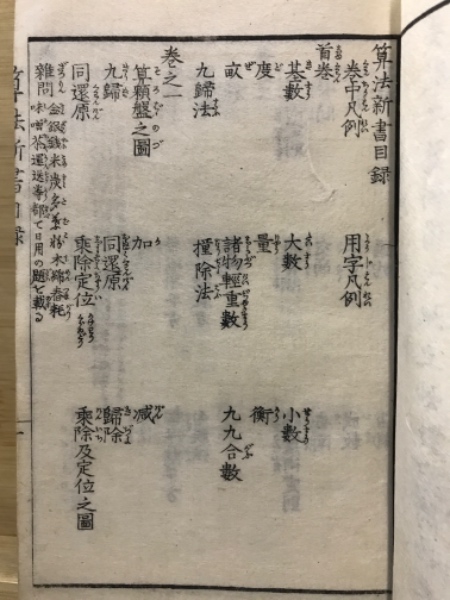 算法新書目録
首巻
巻中凡例 用字凡例
基數 大數 小數
度 量 衡
畝 諸物輕重數 九九合數
九歸法 撞除法
巻之一
算顆盤之圖 加 减
九歸 同還原 歸除
同還原 乘除定位 乘除及定位之圖
雜問 金銀錢米炭多葉粉木綿舂耗
味噌茶運送等都て日用の題を載る
算法新書目録
一